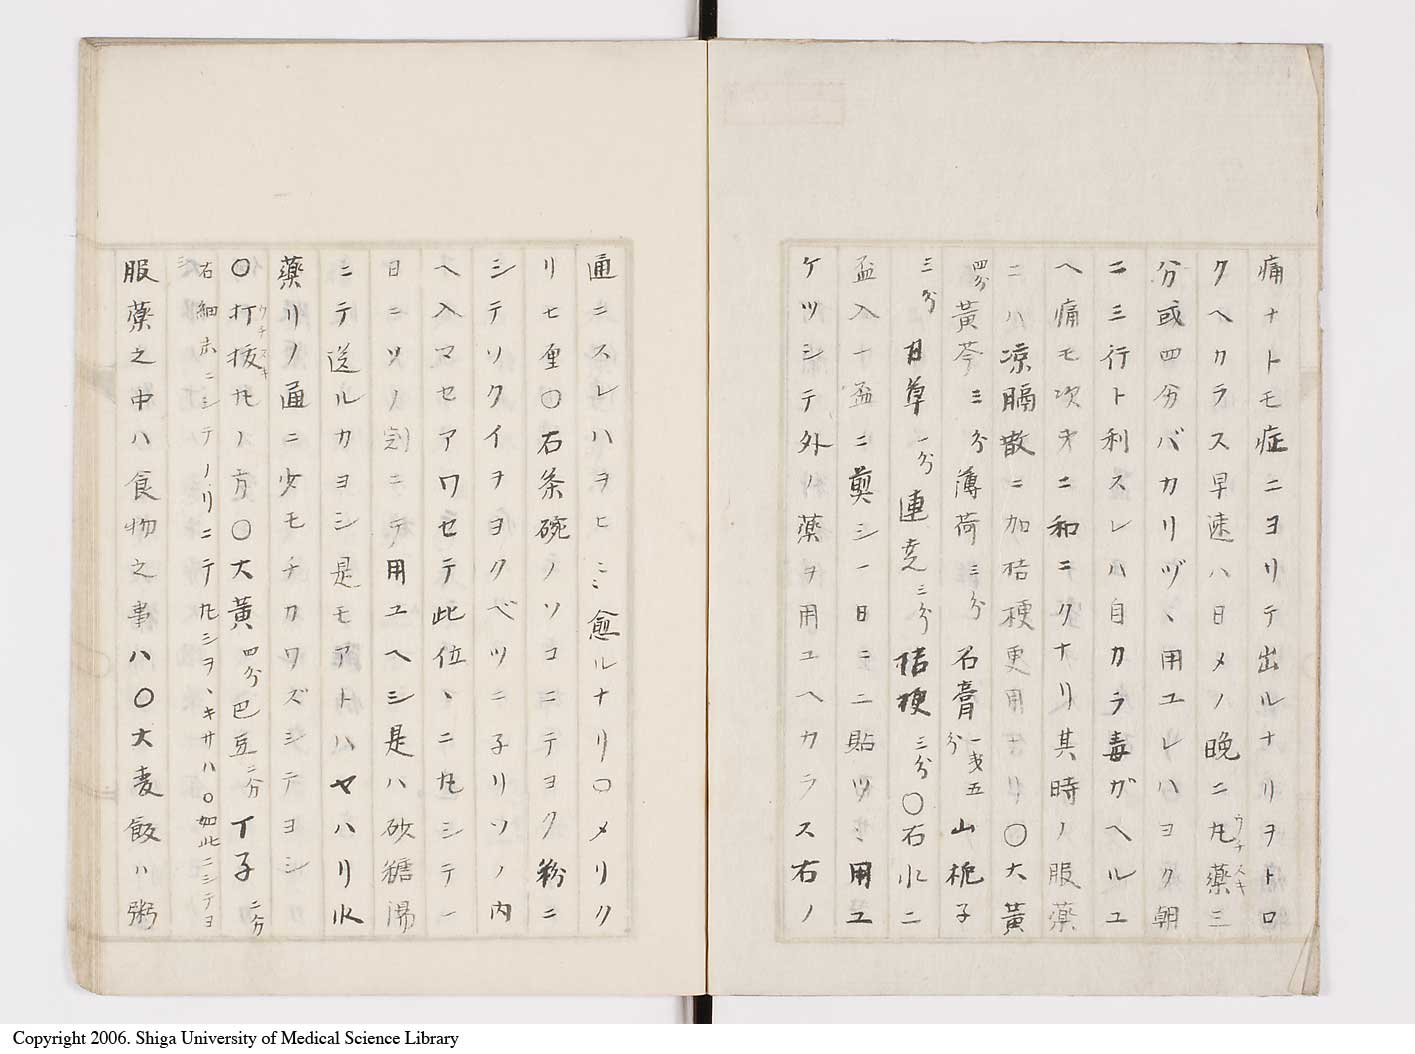 痛ナトモ症ニヨリテ出ルナリヲトロ
クヘカラス早速ハ日メノ晩ニ丸薬三
ウチヌキ
分或四分バカリヅヽ用ユレハヨク朝
二三行ト利スレハ自カラ毒ガヘルユ
ヘ痛モ次才ニ和ニクナリ其時ノ服薬
ニハ凉膈散ニ加桔梗更用ナリ〇大黃
四分黃芩三分薄荷三分石膏一戋五分山梔子
三分甘草一分連尭三分桔梗三分〇石水二
盃入十盃ニ煎シ一日ニ二貼ツヽ用ユ
ケツシテ外ノ薬ヲ用ユヘカラス右ノ
通ニスレハヲヒ〻愈ルナリ〇メリク
リヒ厘〇右条碗ノソコニテヨク粉ニ
シテソクイヲヨクベツニ子リソノ内
ヘ入マセアワセテ此位ヽニ丸シテ一
日ニソノ剤ニテ用ユヘシ是ハ砂糖湯
ニテ送ルカヨシ是モアトハヤハリ水
薬リノ通ニ少モチカワズシテヨシ
〇打拔丸ノ方〇大黃四分巴豆二分丁子二分
ウチヌキ
右細末ニシテノリニテ丸シヲヽキサハ〇如此ニシテヨシ
服薬之中ハ食物之事ハ〇大麦飯ハ粥
Copyright 2006. Shiga University of Medical Science Library